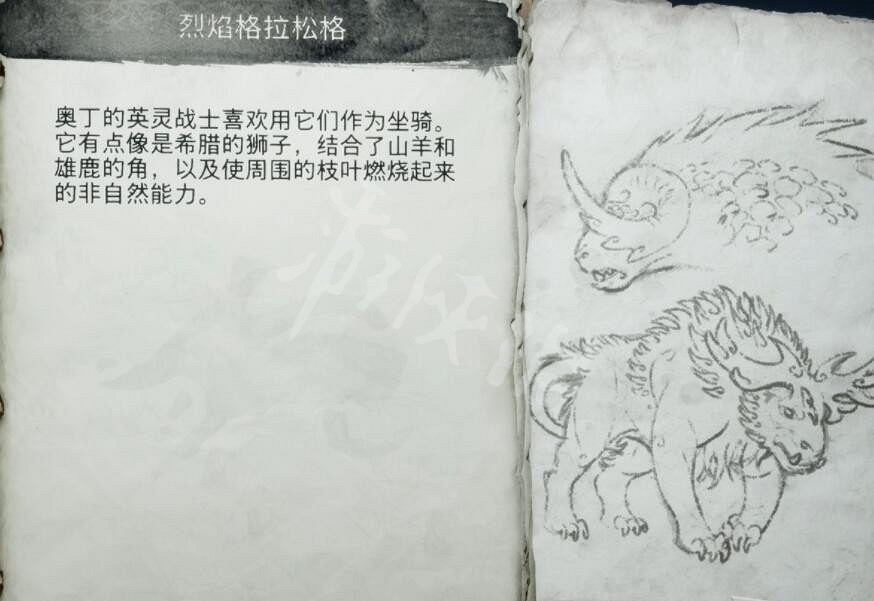 烈焰格拉松格
奥丁的英灵战士喜欢用它们作为坐骑。
它有点像是希腊的狮子，结合了山羊和
雄鹿的角，以及使周围的枝叶燃烧起来
的非自然能力。